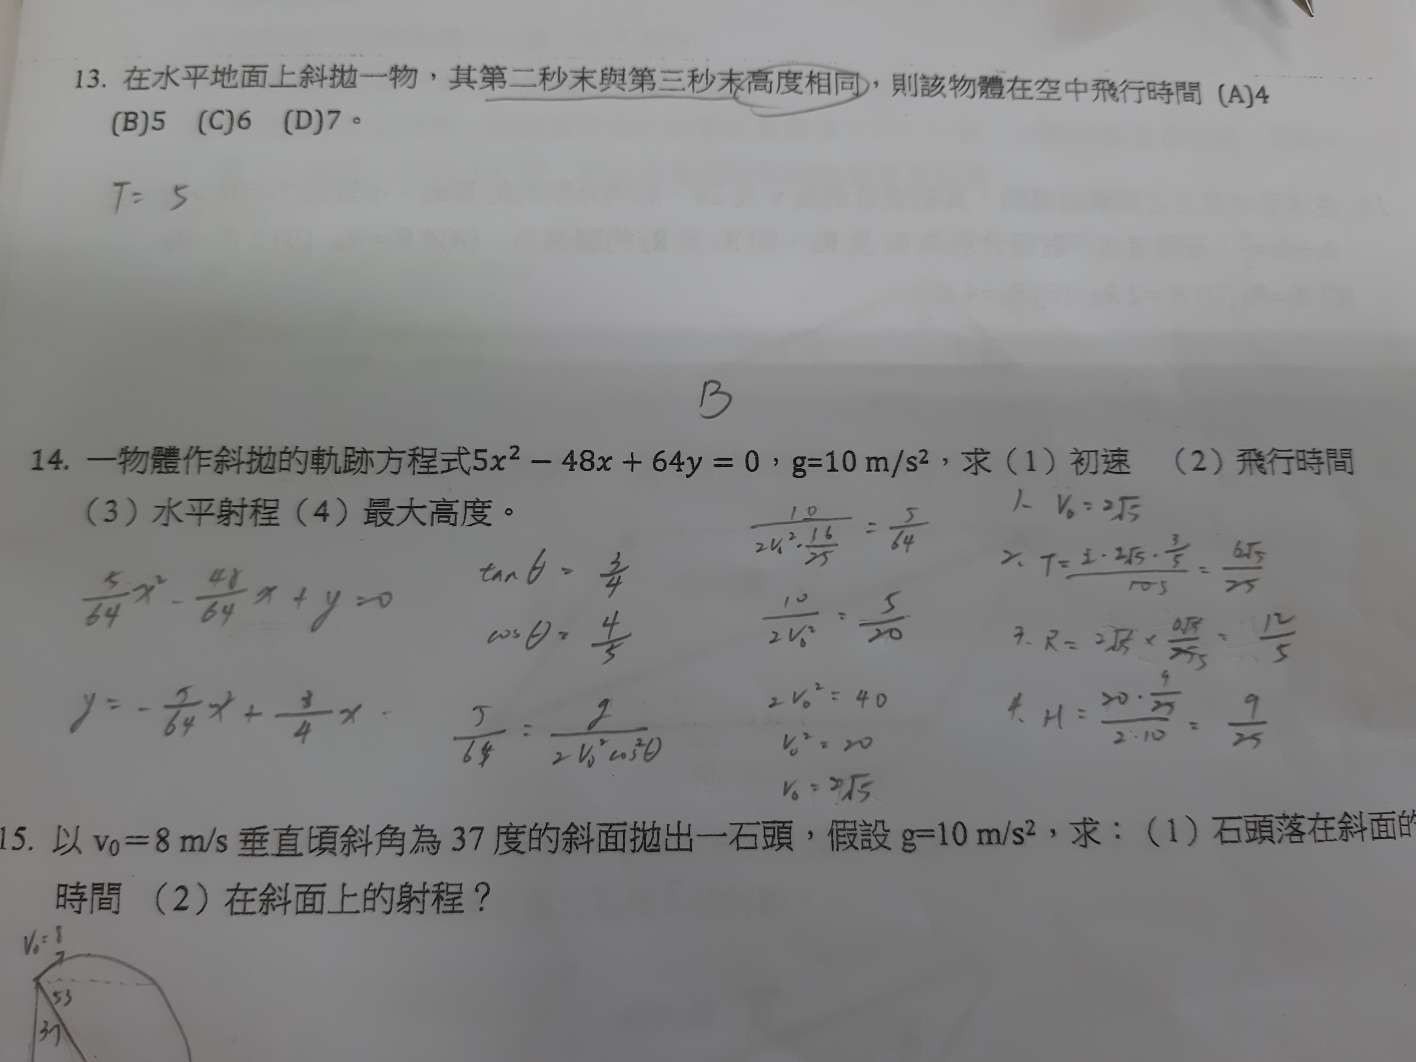 13. 在水平地面上斜拋一物，其第二秒末與第三秒末高度相同，則該物體在空中飛行時間 (A)4
(B)5 (C)6 (D)7。
T= 5
B
14. 一物體作斜拋的軌跡方程式5x² − 48x + 64y = 0，g=10 m/s²，求（1）初速 （2）飛行時間
（3）水平射程（4）最大高度。
5/64 x² - 48/64 x + y = 0
y = - 5/64 x² + 3/4 x
tanθ = 3/4
cosθ = 4/5
5/64 = g/2V₀²cos²θ
10/2V₀²·16/25 = 5/64
10/2V₀² = 5/20
2V₀² = 40
V₀² = 20
V₀ = 2√5
1. V₀ = 2√5
2. T = 2·2√5·3/5 / 10 = 6√5/25
3. R = 2√5 × 6√5/25 = 12/5
4. H = 20·9/25 / 2·10 = 9/25
15. 以 v₀＝8 m/s 垂直頃斜角為 37 度的斜面拋出一石頭，假設 g=10 m/s²，求：（1）石頭落在斜面的
時間 （2）在斜面上的射程？
V₀=8
53
37